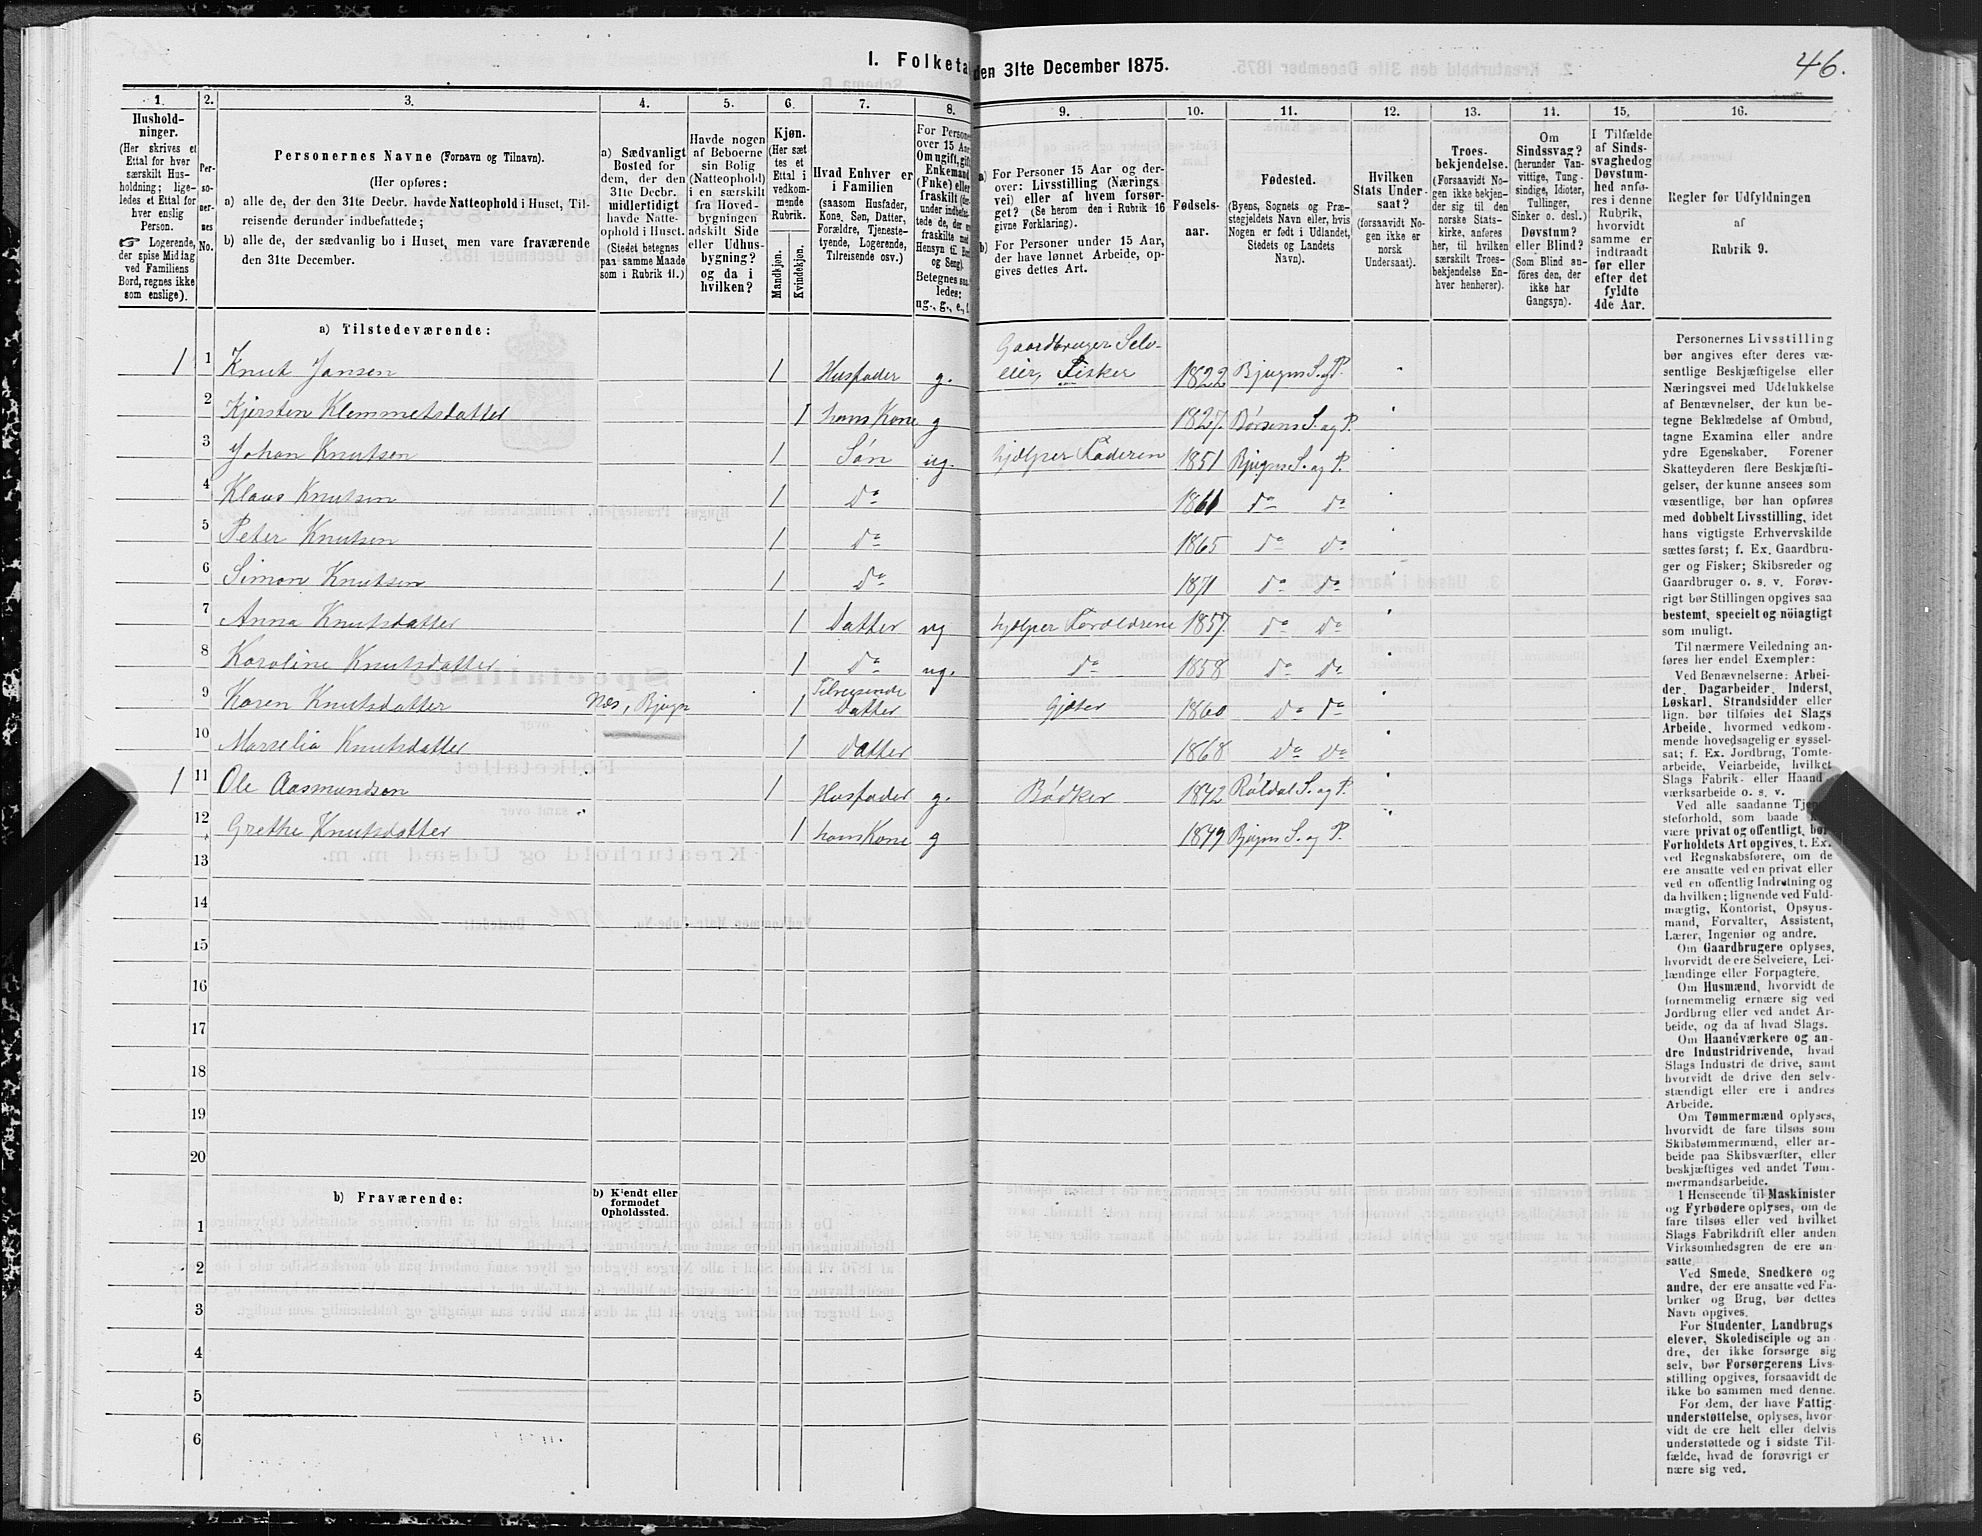 I. Folketæ
den 31te December 1875.
46.
1.
2.
3.
4.
5.
6.
7.
8.
9.
10.
11.
12.
13.
14.
15.
16.
Hushold-
ninger.
(Her skrives et
Ettal for hver
særskilt Hus-
holdning; lige-
ledes et Ettal for
hver enslig
Person.
Logerende,
der spise Middag
ved Familiens
Bord, regnes ikke
som enslige).
Per-
so-
ner-
nes
No.
Personernes Navne (Fornavn og Tilnavn).
(Her opføres:
a) alle de, der den 31te Decbr. havde Natteophold i Huset, Til-
reisende derunder indbefattede;
b) alle de, der sædvanlig bo i Huset, men vare fraværende
den 31te December.
a) Sædvanligt
Bosted for
dem, der den
31te Decbr.
midlertidigt
havde Natte-
ophold i Huset.
(Stedet betegnes
paa samme Maade
som i Rubrik 11.)
Havde nogen
af Beboerne
sin Bolig
(Natteophold)
i en særskilt
fra Hoved-
bygningen
adskilt Side
eller Udhus-
bygning?
og da i
hvilken?
Kjøn.
(Her sæt
tes et
Ettal i
vedkom-
mende
Rubrik.
Mandkjøn.
Kvindekjøn.
Hvad Enhver er
i Familien
(saasom Husfader,
Kone, Søn, Datter,
Forældre, Tjeneste-
tyende, Logerende,
Tilreisende osv.)
For Persone
over 15 Aar
Om ugift, gift
Enkemand
(Fnke) eller
fraskilt
Betegnes saa-
ledes:
ug., g., e., f.
a) For Personer 15 Aar og der-
over: Livsstilling (Nærings
vei) eller af hvem forsør-
get? (Se herom den i Rubrik 16
givne Forklaring).
b) For Personer under 15 Aar,
der have lønnet Arbeide, op-
gives dettes Art.
Fødsels-
aar.
Fødested.
(Byens, Sognets og Præ-
stegjeldets Navn eller, hvis
Nogen er født i Udlandet,
Stedets og Landets
Navn).
Hvilken
Stats Under-
saat?
(forsaavidt No-
gen ikke er
norsk
Undersaat).
Troes-
bekjendelse.
(Forsaavidt No-
gen ikke bekjen-
der sig til den
norske Stats-
kirke, anføres
her, til hvilken
særskilt Troes-
bekjendelse En-
hver henhører).
Om
Sindssvag?
(herunder Van-
vittige, Tung-
sindige, Idioter,
Tullinger,
Sinker o. desl.)
Døvstum?
eller Blind?
(Som Blind an-
føres den, der
ikke har
Gangsyn).
I Tilfælde
af Sinds-
svaghed og
Døvstum-
hed anfø-
res i denne
Rubrik,
hvorvidt
samme er
indtraadt
før eller
efter det
fyldte
4de Aar.
Regler for Udfyldningen
af
Rubrik 9.
a) Tilstedeværende:
1 1 Knut Jansen 1 Husfader g. Gaardbruger Selv-
eier, Fisker 1822 Bjugns S. og P.
2 Kjersten Klemmetsdatter 1 hans Kone g 1827. Børsens S. og P.
3 Johan Knutsen 1 Søn ug. hjælper Faderen 1851 Bjugns S. og P.
4 Klaus Knutsen 1 Do 1861 do do
5 Peter Knutsen 1 do 1865 do do
6 Simon Knutsen 1 do 1871 do do
7 Anna Knutsdatter 1 Datter ug hjælper Forældrene 1857. do do
8 Karoline Knutsdatter 1 do ug. do 1858 do do
9 Karen Knutsdatter Næs, Bjugn 1 Tilreisende
Datter Gjeter 1860 do do
10 Marselia Knutsdatter 1 datter 1868 do do
1 11 Ole Aasmundsen 1 Husfader g. Bødker 1842 Røldal S. og P.
12 Grethe Knutsdatter 1 hans Kone g 1849 Bjugns S. og P.
13
14
15
16
17
18
19
20
b) Fraværende:
b) Kjendt eller
formodet
Opholdssted.
1
2
3
4
5
6
Personernes Livsstilling
bør angives efter deres væ-
sentlige Beskjæftigelse eller
Næringsvei med Udelukkelse
af Benævnelser, der kun be-
tegne Beklædelse af Ombud,
tagne Examina eller andre
ydre Egenskaber. Forener
Skatteyderen flere Beskjæfti-
gelser, der kunne ansees som
væsentlige, bør han opføres
med dobbelt Livsstilling, idet
hans vigtigste Erhvervskilde
sættes først; f. Ex. Gaardbru-
ger og Fisker; Skibsreder og
Gaardbruger o. s. v. Forøv-
rigt bør Stillingen opgives saa
bestemt, specielt og nöiagtigt
som muligt.
Til nærmere Veiledning an-
føres her endel Exempler:
Ved Benævnelserne: Arbei-
der, Dagarbeider, Inderst,
Løskarl, Strandsidder eller
lign. bør tilføies det Slags
Arbeide, hvormed vedkom-
mende hovedsagelig er syssel-
sat; f. Ex. Jordbrug, Tomte-
arbeide, Veiarbeide, hvilket
Slags Fabrik- eller Haand-
værksarbeide o. s. v.
Ved alle saadanne Tjene-
steforhold, som baade
være privat og offentligt, bør
Forholdets Art opgives, f. Ex.
ved Regnskabsførere, om de
ere ansatte ved en privat eller
ved en offentlig Indretning og
da hvilken; lignende ved Fuld-
mægtig, Kontorist, Opsyns-
mand, Forvalter, Assistent,
Lærer, Ingeniør og andre.
Om Gaardbrugere oplyses,
hvorvidt de ere Selveiere, Lei-
lændinge eller Forpagtere.
Om Husmænd, hvorvidt de
fornemmelig ernære sig ved
Jordbrug eller ved andet Ar-
beide, og da af hvad Slags.
Om Haandværkere og an-
dre Industridrivende, hvad
Slags Industri de drive, samt
hvorvidt de drive den selv-
stændigt eller ere i andres
Arbeide.
Om Tømmermænd oplyses,
hvorvidt de fare tilsøs som
Skibstømmermænd, eller ar-
beide paa Skibsværfter, eller
beskjæftiges ved andet Tøm-
mermandsarbeide.
I Henseende til Maskinister
og Fyrbødere oplyses, om de
fare tilsøs eller ved hvilket
Slags Fabrikdrift eller anden
Virksomhedsgren de ere an-
satte.
Ved Smede, Snedkere og
andre, der ere ansatte ved Fa-
briker og Brug, bør dettes
Navn opgives.
For Studenter, Landbrugs
elever, Skoledisciple og an-
dre, der ikke forsørge sig
selv, bør Forsørgerens Livs-
stilling opgives, forsaavidt de
ikke bo sammen med denne.
For dem, der have Fattig-
understøttelse, oplyses, hvor-
vidt de ere helt eller delvis
understøttede og i sidste Til-
fælde, hvad de forøvrigt er-
nære sig ved.